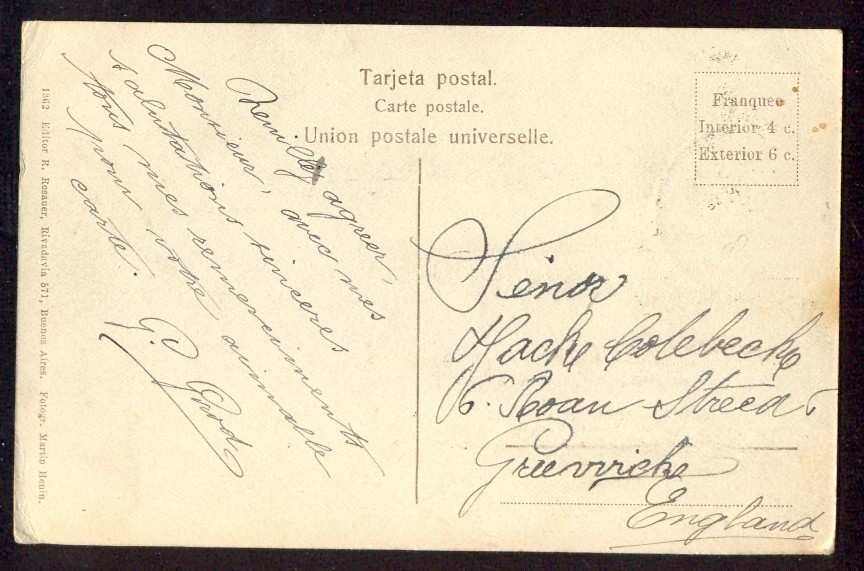 Tarjeta postal.
Carte postale.
Union postale universelle.
Franqueo
Interior 4 c.
Exterior 6 c.
Veuillez agréer,
Monsieur, avec mes
salutations sinceres
tous mes remerciments
pour votre aimable
carte.
G.
Señor
Hache Colebeck
6. Roan Street
Greenwiche
England
1362 Editor R. Rosauer, Rivadavia 571, Buenos Aires. Fotogr. Martin Henin.